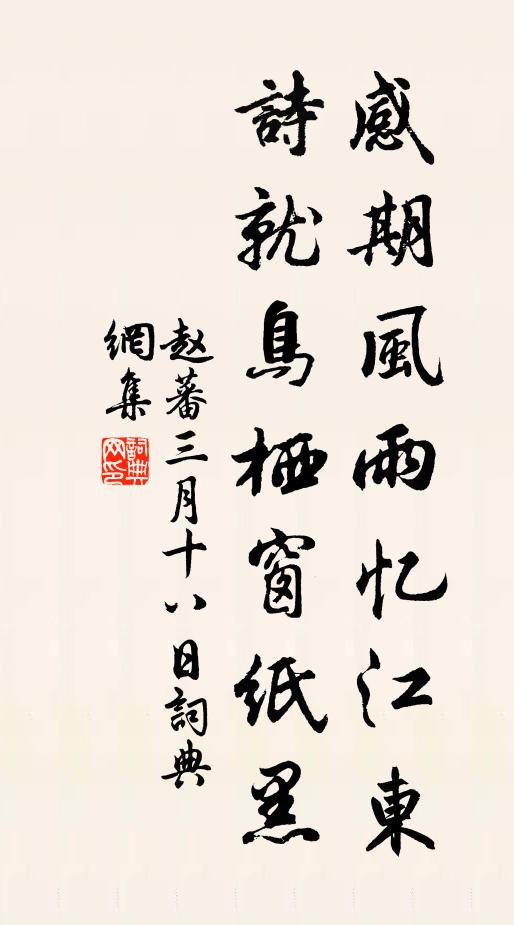 感期風雨忆江東
詩就鳥栖窗紙黑
赵蕃三月十八日詞典
網集
詞典
网印